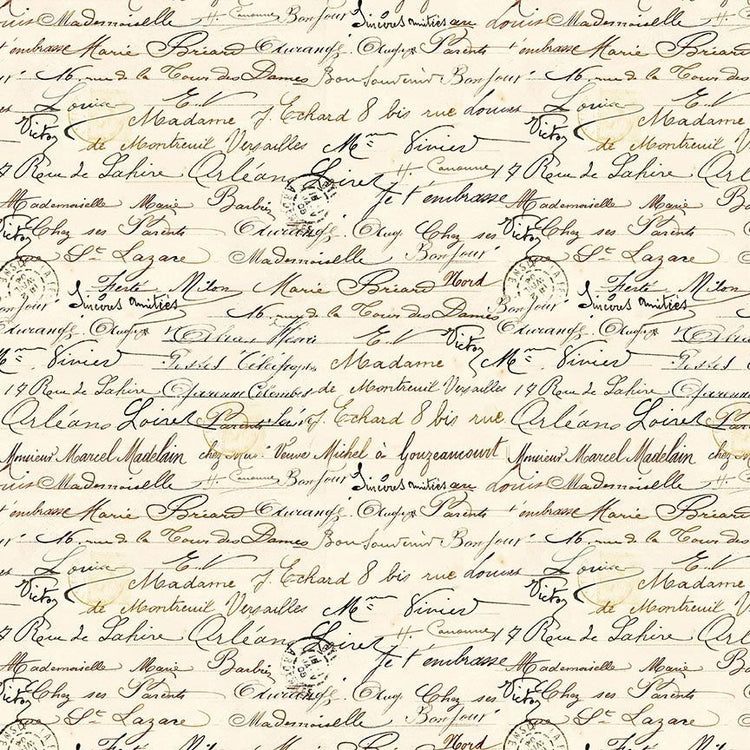 Louis Mademoiselle H. Canonne Bonjour Sincères amitiés au Louis Mademoiselle H. Canonne Bonjour
t'embrasse Marie Briard Parents t'embrasse Marie Briard
16, rue de la Tour des Dames Bon Souvenir Bonjour 16, rue de la Tour des
Louise E. V Louise E. V
Victor Madame J. Echard 8 bis rue Victor Madame J.
de Montreuil Versailles Mme Vivier de Montreuil Versailles
17 Rue de Lahire Orléans Loiret H. Canonne 17 Rue de Lahire
Je t'embrasse
Mademoiselle Marie Barbier Mademoiselle Marie
Victor Chez ses Parents Chez ses Victor Chez ses Parents
rue St Lazare Mademoiselle Bonjour rue St Lazare
Ferté Milon Marie Briard Nord Ferté Milon
Bonjour Sincères amitiés Bonjour Sincères amitiés
16, rue de la Tour des Dames
E. V Victor
Mme Vivier Madame Mme Vivier
17 Rue de Lahire de Montreuil Versailles 17 Rue de Lahire
Orléans Loiret Parents J. Echard 8 bis rue Orléans Loiret Parents
Monsieur Marcel Madelain chez Veuve Michel à Gouzeaucourt Monsieur Marcel Madelain chez
Louis Mademoiselle H. Canonne Bonjour Sincères amitiés au Louis Mademoiselle H. Canonne Bonjour
t'embrasse Marie Briard Parents t'embrasse Marie Briard
16, rue de la Tour des Dames Bon Souvenir Bonjour 16, rue de la Tour des
Louise E. V Louise E. V
Victor Madame J. Echard 8 bis rue Victor Madame J.
de Montreuil Versailles Mme Vivier de Montreuil Versailles
17 Rue de Lahire Orléans Loiret H. Canonne 17 Rue de Lahire
Je t'embrasse
Mademoiselle Marie Barbier Mademoiselle Marie
Victor Chez ses Parents Chez ses Victor Chez ses Parents
rue St Lazare Mademoiselle Bonjour rue St Lazare
Ferté Milon Marie Briard Nord Ferté Milon